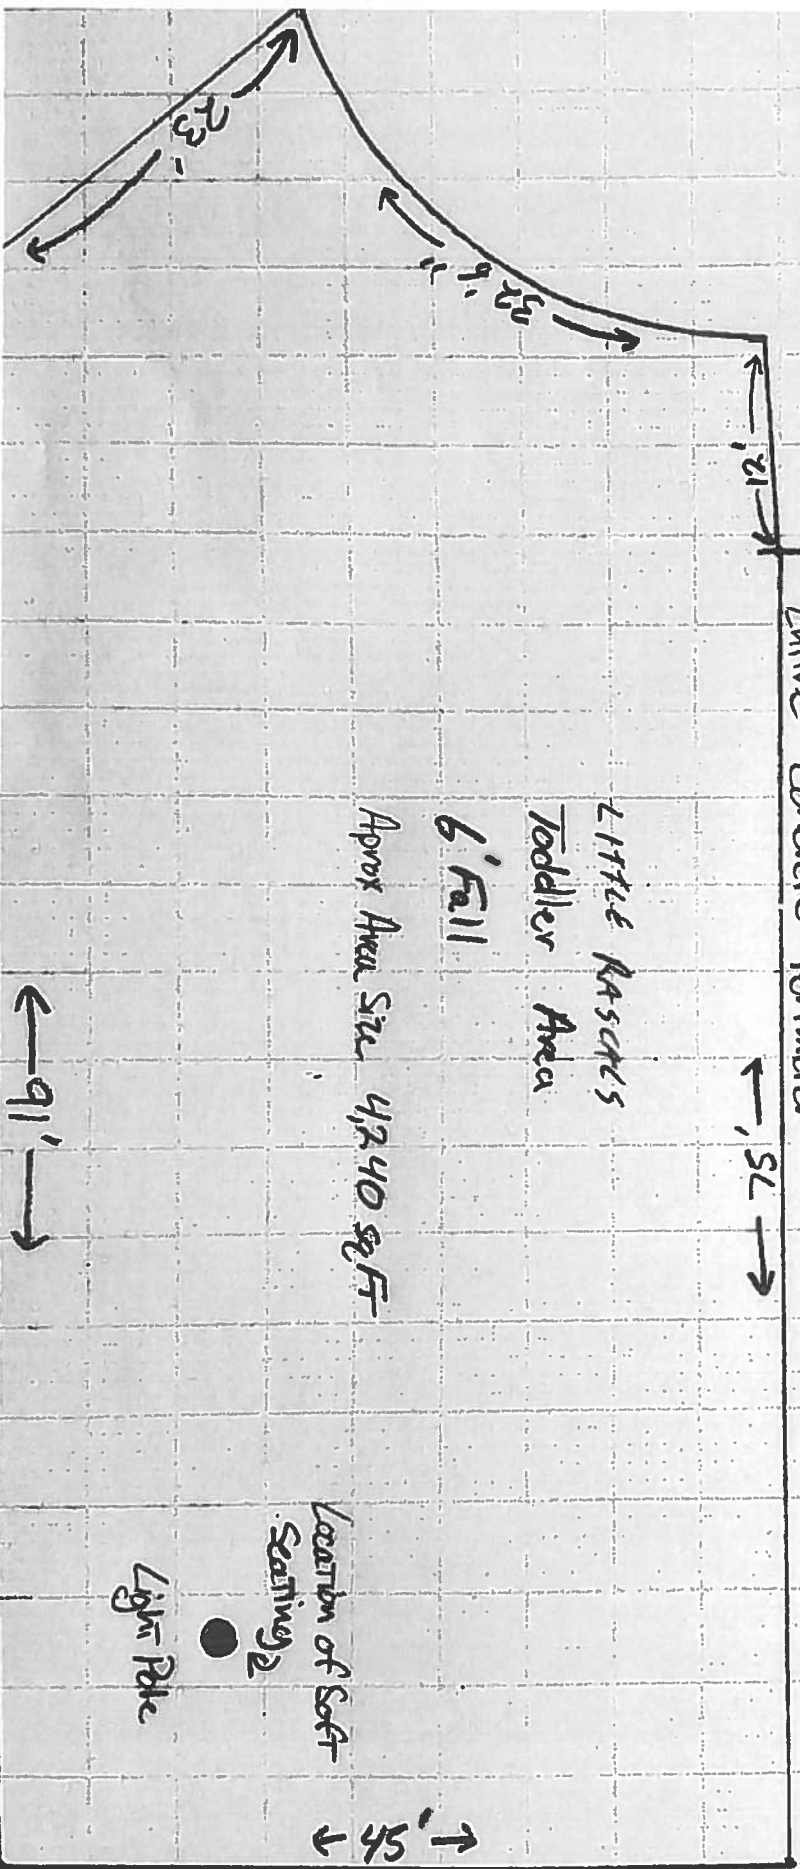 23'
32'6"
12'
75'
LITTLE RASCALS
Toddler Area
6' Fall
Aprox Area Size 4,240 sq FT
91'
Location of Soft
Seating
Light Pole
45'